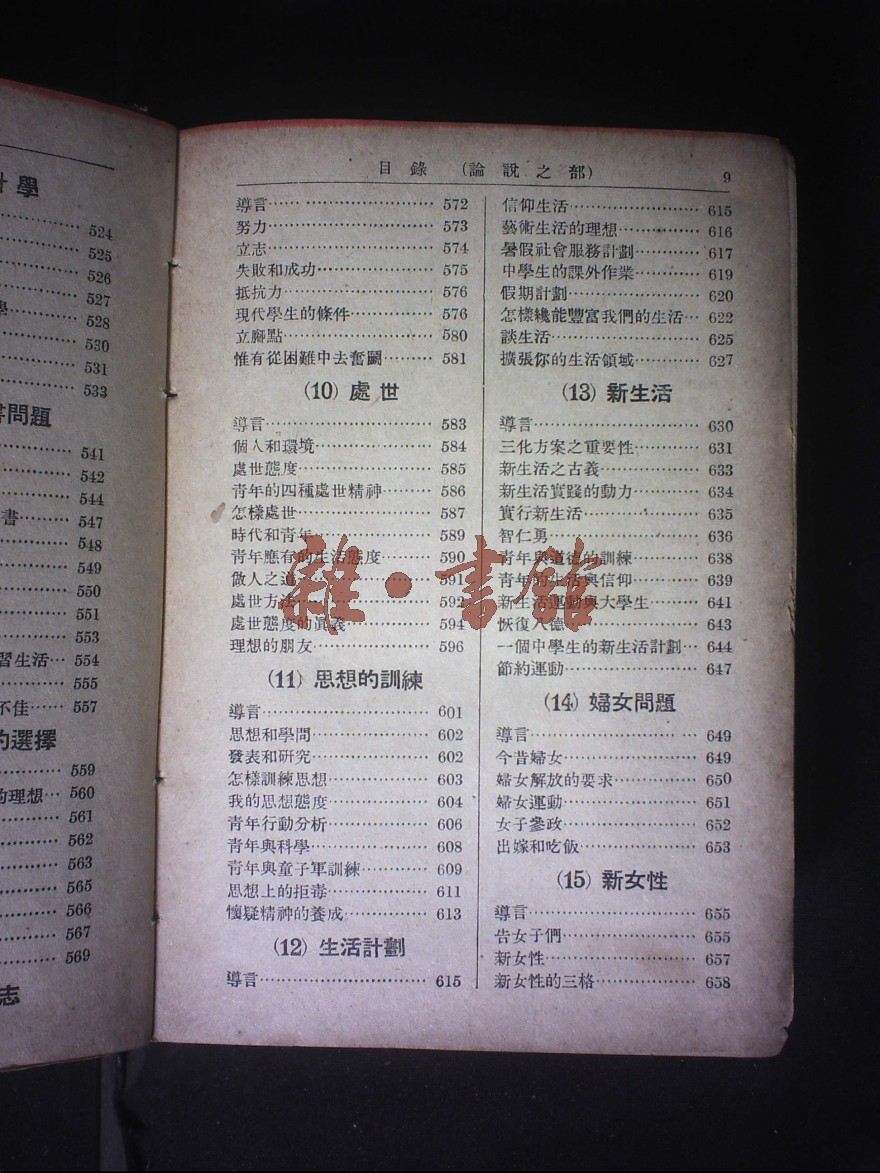 計學
524
525
526
527
學 528
530
531
533
書問題
541
542
544
書 547
548
549
550
551
553
習生活 554
555
不佳 557
的選擇
559
的理想 560
561
562
563
565
566
567
569
志
目錄 (論說之部) 9
導言 572
努力 573
立志 574
失敗和成功 575
抵抗力 576
現代學生的條件 576
立腳點 580
惟有從困難中去奮鬭 581
(10) 處世
導言 583
個人和環境 584
處世態度 585
青年的四種處世精神 586
怎樣處世 587
時代和青年 589
青年應有的生活態度 590
做人之道 591
處世方法 592
處世態度的眞義 594
理想的朋友 596
(11) 思想的訓練
導言 601
思想和學問 602
發表和研究 602
怎樣訓練思想 603
我的思想態度 604
青年行動分析 606
青年與科學 608
青年與童子軍訓練 609
思想上的拒毒 611
懷疑精神的養成 613
(12) 生活計劃
導言 615
信仰生活 615
藝術生活的理想 616
暑假社會服務計劃 617
中學生的課外作業 619
假期計劃 620
怎樣纔能豐富我們的生活 622
談生活 625
擴張你的生活領域 627
(13) 新生活
導言 630
三化方案之重要性 631
新生活之古義 633
新生活實踐的動力 634
實行新生活 635
智仁勇 636
青年與道德的訓練 638
青年的生活與信仰 639
新生活運動與大學生 641
恢復八德 643
一個中學生的新生活計劃 644
節約運動 647
(14) 婦女問題
導言 649
今昔婦女 649
婦女解放的要求 650
婦女運動 651
女子參政 652
出嫁和吃飯 653
(15) 新女性
導言 655
告女子們 655
新女性 657
新女性的三格 658
雜·書館